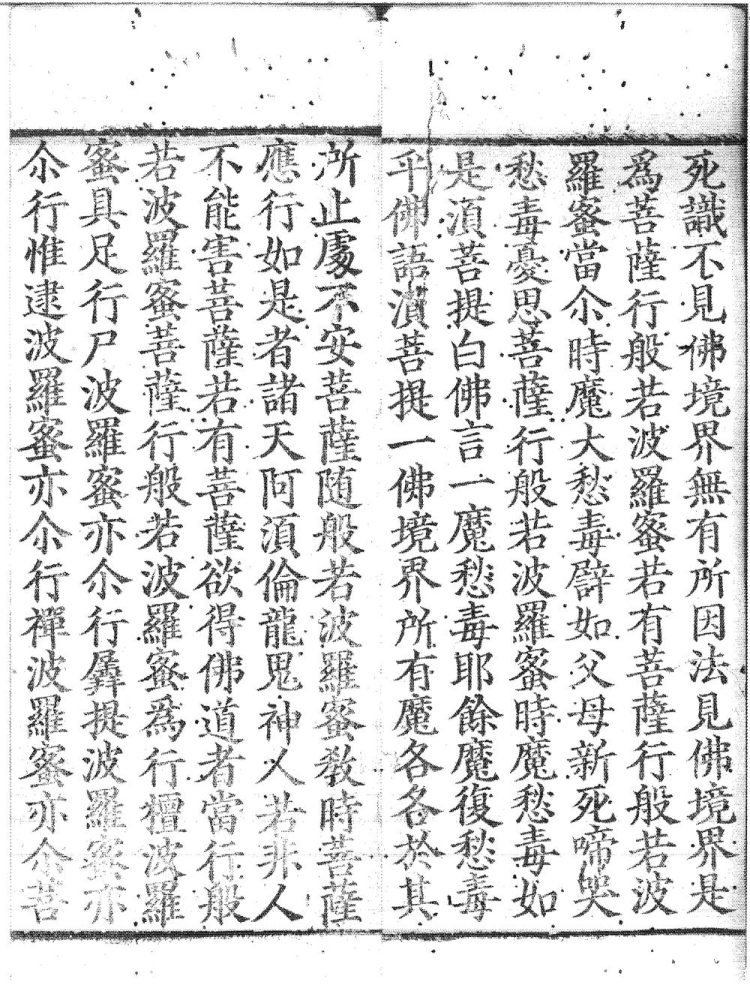 死識不見佛境界無有所因法見佛境界是
爲菩薩行般若波羅蜜若有菩薩行般若波
羅蜜當尒時魔大愁毒辟如父母新死啼哭
愁毒憂思菩薩行般若波羅蜜時魔愁毒如
是湏菩提白佛言一魔愁毒耶餘魔復愁毒
乎佛語湏菩提一佛境界所有魔各各於其
所止處不安菩薩随般若波羅蜜教時菩薩
應行如是者諸天阿湏倫龍鬼神人若非人
不能害菩薩若有菩薩欲得佛道者當行般
若波羅蜜菩薩行般若波羅蜜爲行檀波羅
蜜具足行尸波羅蜜亦尒行羼提波羅蜜亦
尒行惟逮波羅蜜亦尒行禪波羅蜜亦尒菩